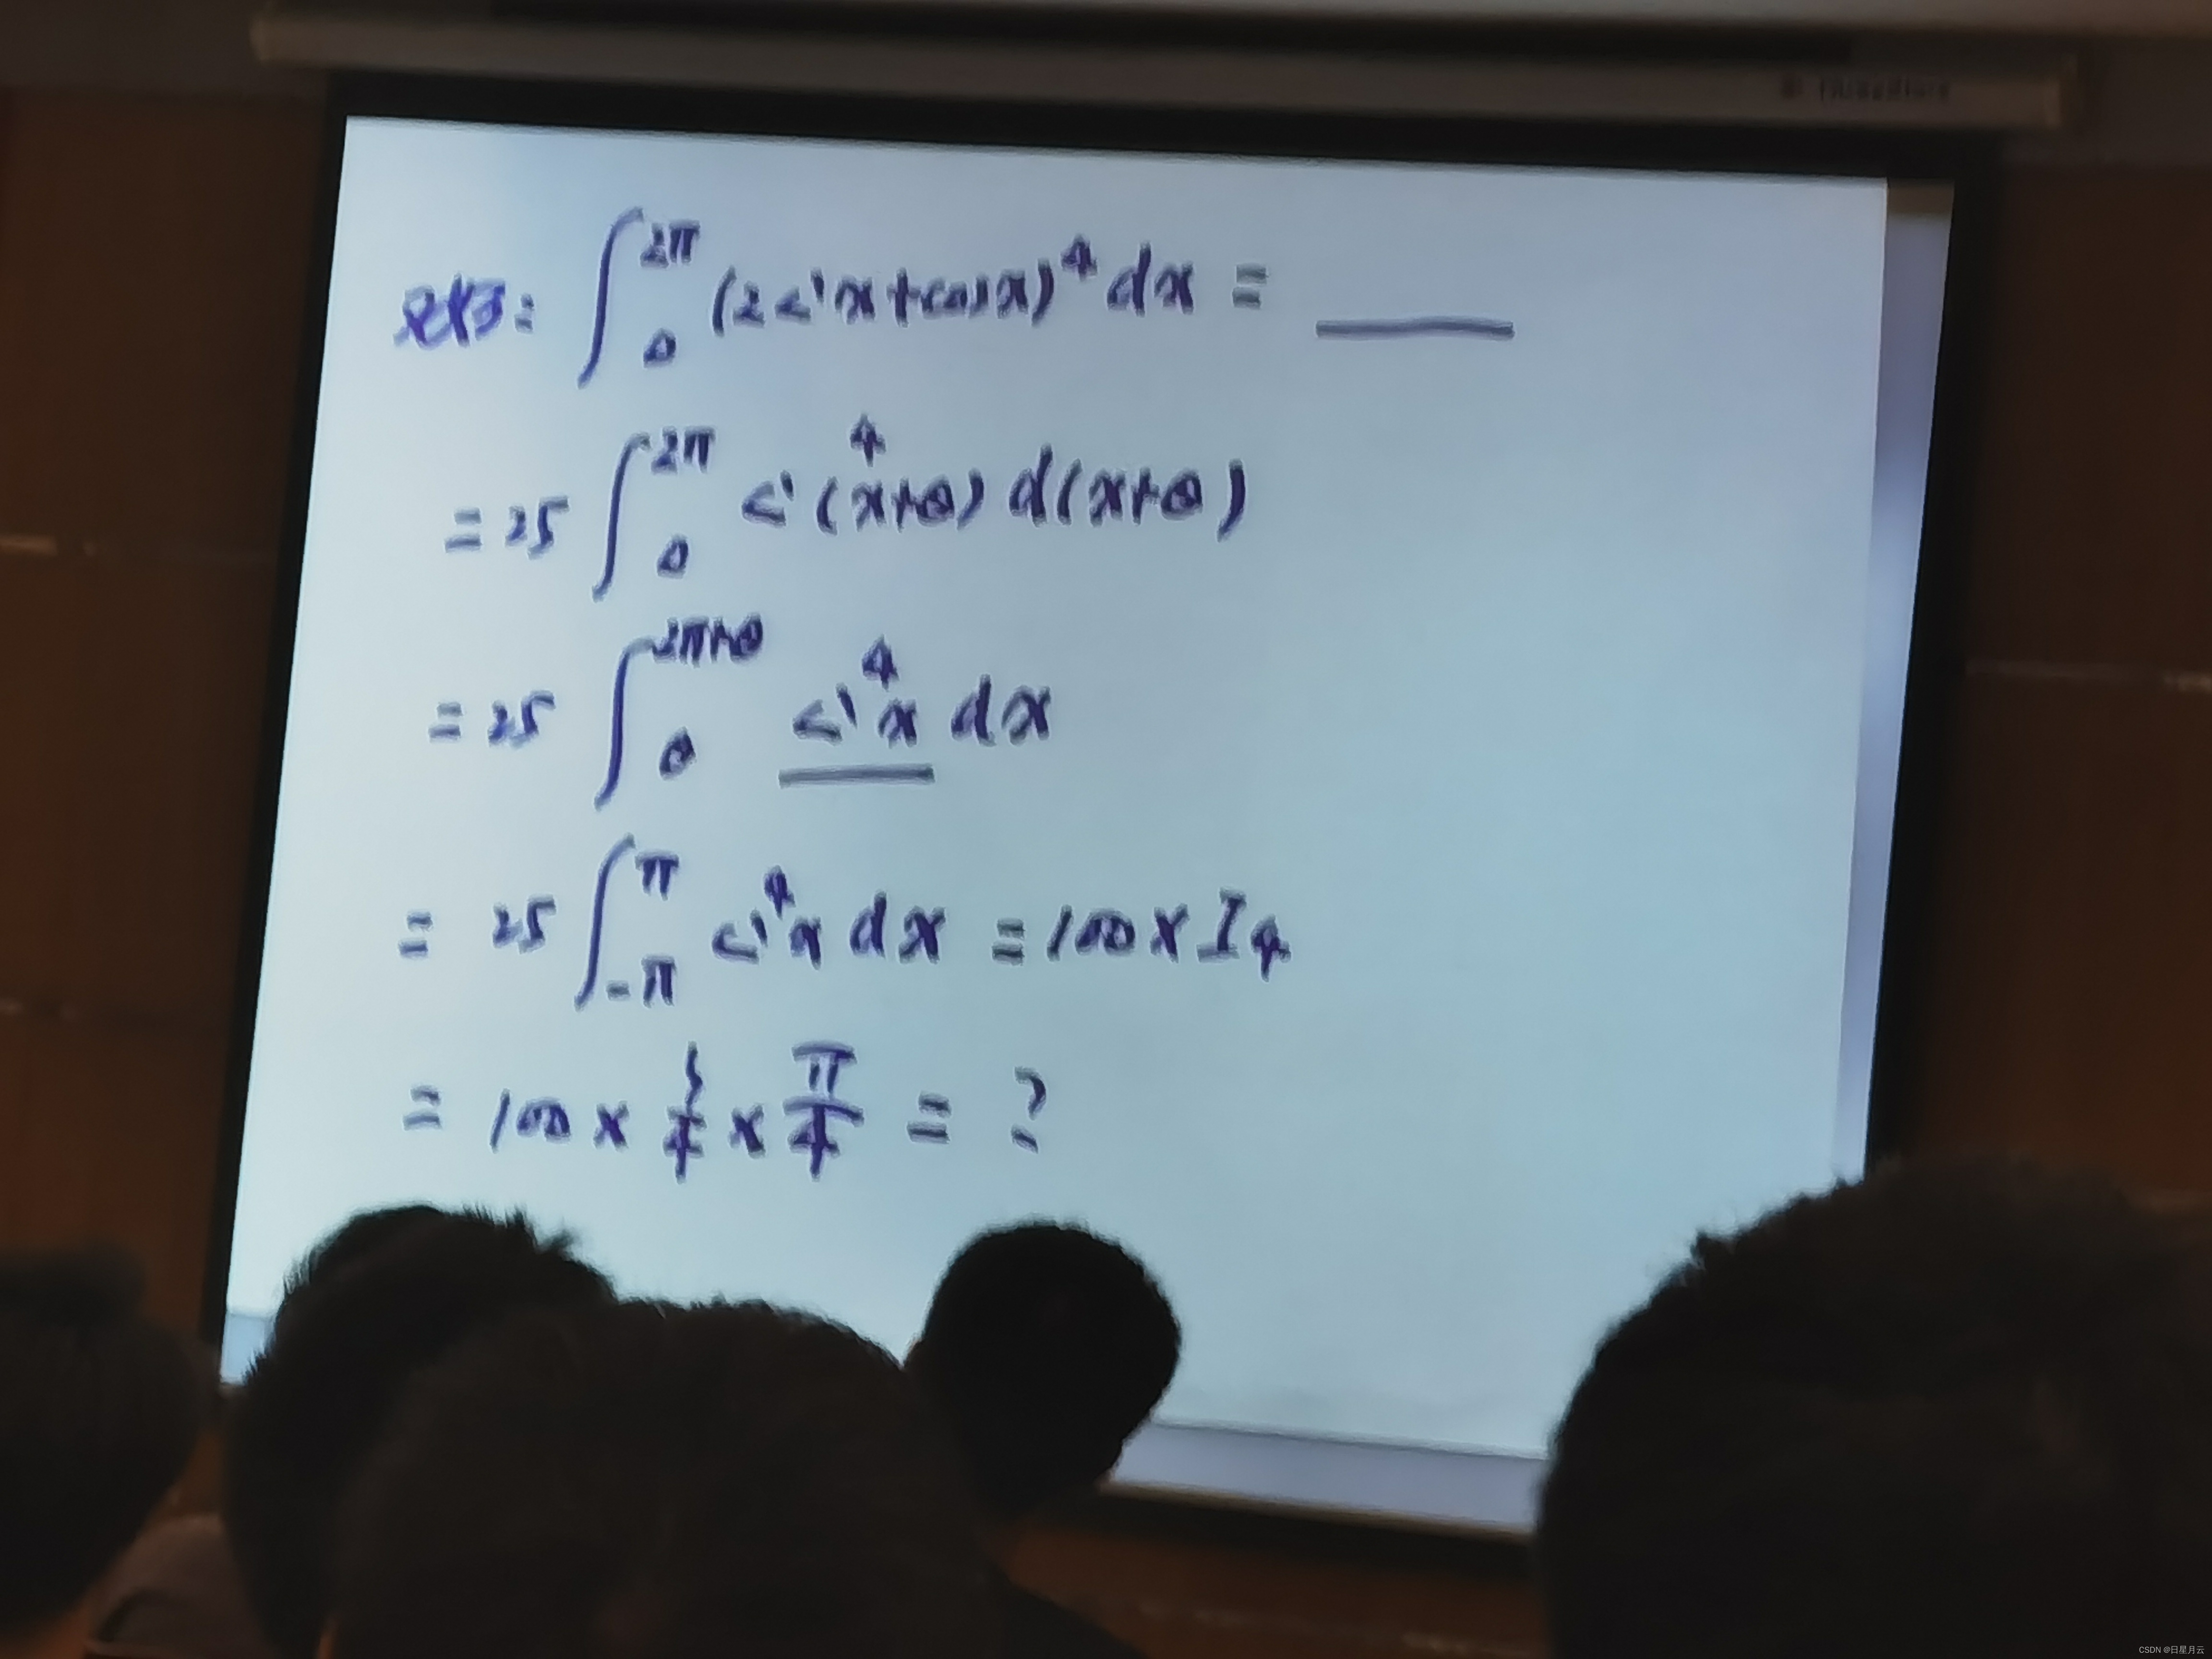 例3: ∫₀^{2π} (2 sin x + cos x)⁴ dx = ____
= 25 ∫₀^{2π} sin⁴(x+θ) d(x+θ)
= 25 ∫_θ^{2π+θ} sin⁴x dx
= 25 ∫_{-π}^{π} sin⁴x dx = 100 × I₄
= 100 × 3/4 × π/4 = ?
CSDN @日星月云